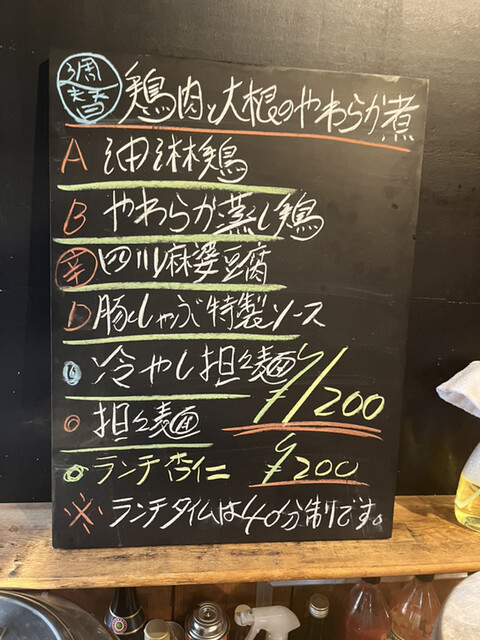 週替 鶏肉と大根のやわらか煮
A 油淋鶏
B やわらか蒸し鶏
辛 四川麻婆豆腐
D 豚しゃぶ特製ソース
冷やし担々麺
¥1200
担々麺
ランチ杏仁 ¥200
※ランチタイムは40分制りです。